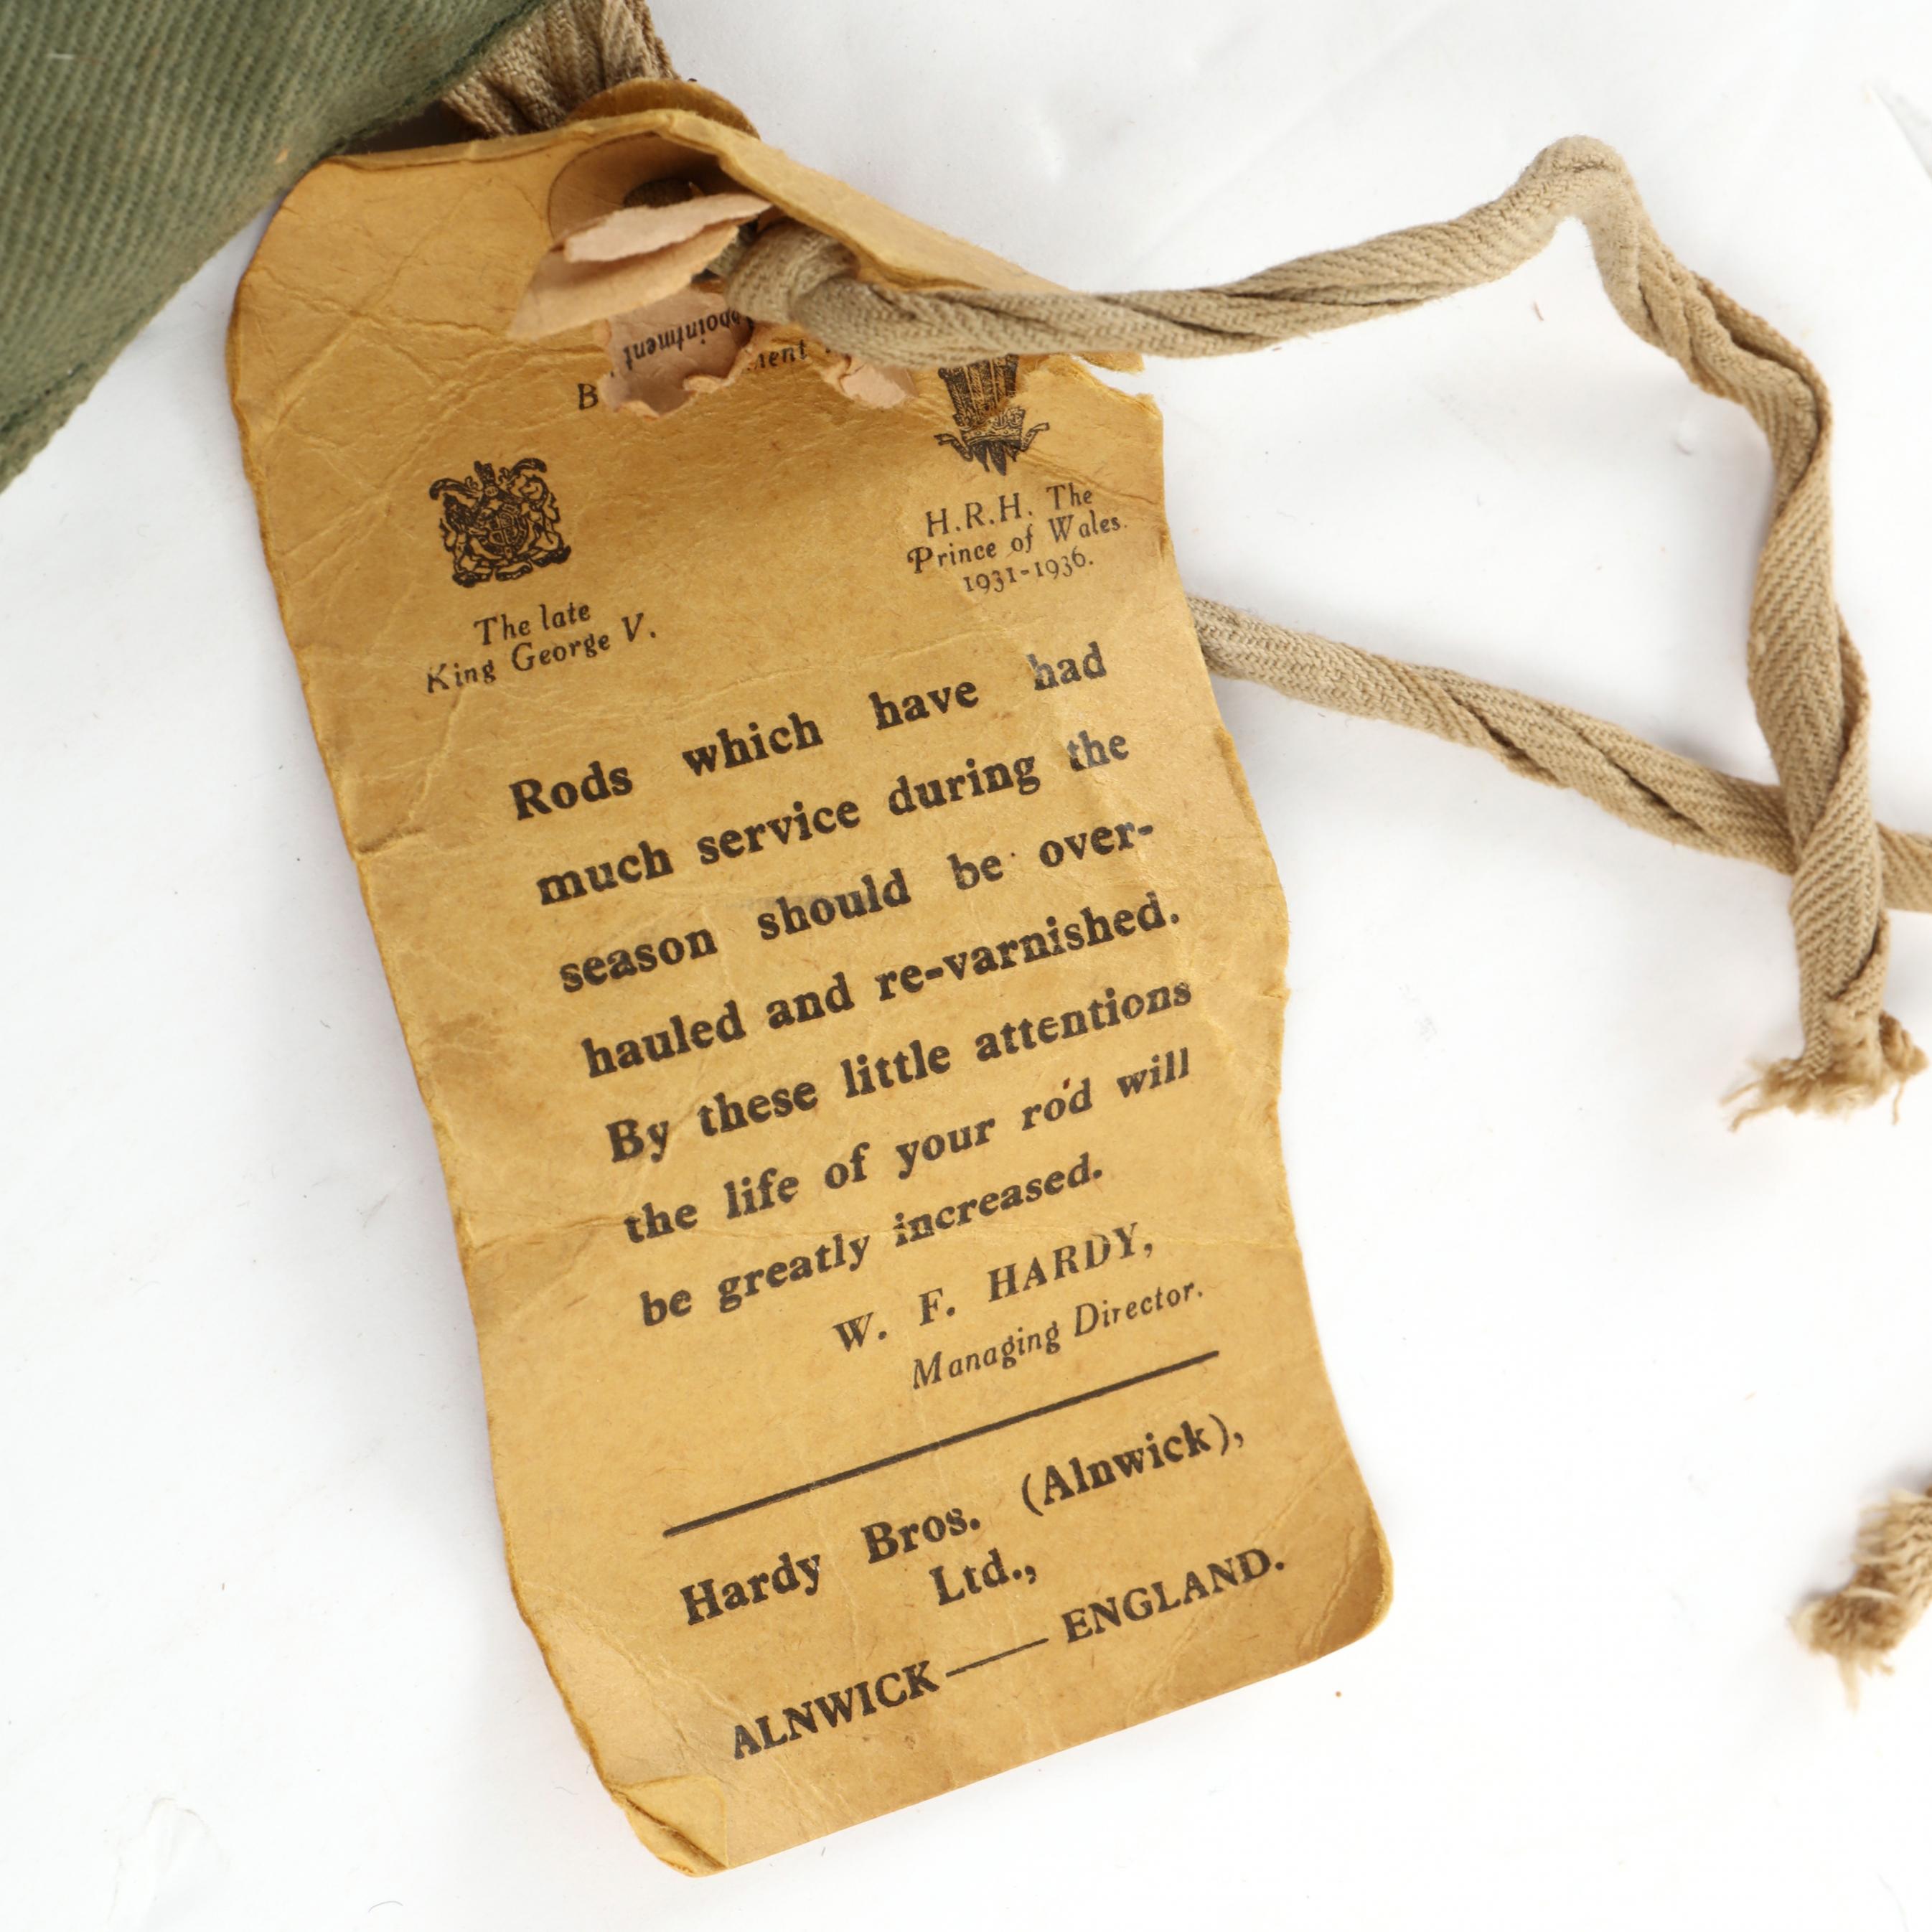 The late
King George V.
H.R.H. The
Prince of Wales.
1931-1936.
Rods which have had
much service during the
season should be over-
hauled and re-varnished.
By these little attentions
the life of your rod will
be greatly increased.
W. F. HARDY,
Managing Director.
Hardy Bros. (Alnwick),
Ltd.,
ALNWICK — ENGLAND.